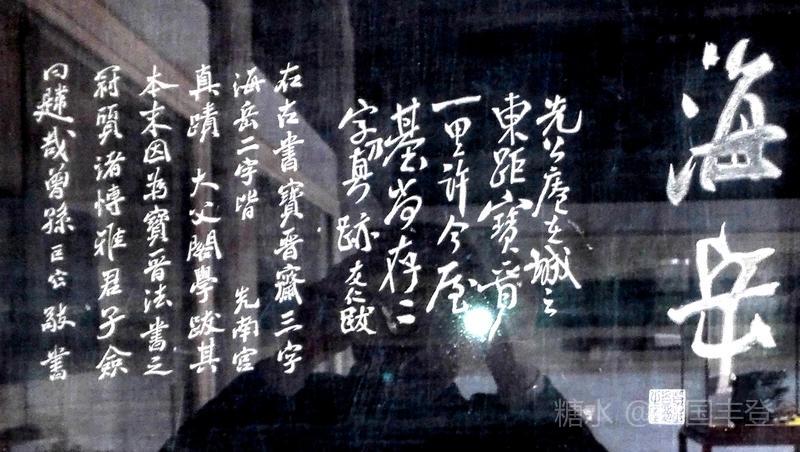 海岳
先公庵在城之
東距寶晉
一里許今屋
基尚存二
字真跡友仁跋
右古書寶晉齋三字
海岳二字皆 先南宮
真蹟 大父閣學跋其
本末因為寶晉法書之
冠質諸博雅君子僉
曰韙哉曾孫巨容敬書
糖水@ 国丰登